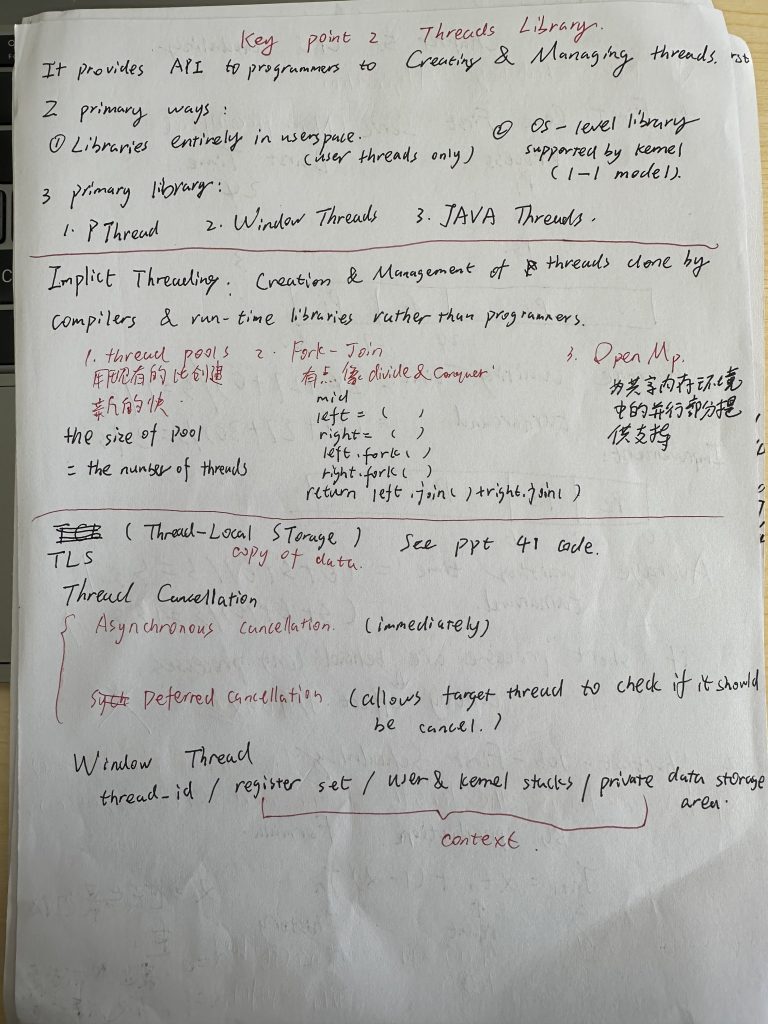 Key point 2 Threads Library.
It provides API to programmers to Creating & Managing threads.
2 primary ways:
① Libraries entirely in userspace.
(user threads only)
② OS-level library
supported by kernel
(1-1 model).
3 primary library:
1. PThread 2. Window Threads 3. JAVA Threads.
Implict Threading: Creation & Management of threads done by
compilers & run-time libraries rather than programmers.
1. thread pools
用现有的比创建
新的快.
the size of pool
= the number of threads
2. Fork-Join
有点像 divide & Conquer
mid
left = ( )
right = ( )
left.fork( )
right.fork( )
return left.join( )+right.join( )
3. Open Mp.
为共享内存环境
中的并行部分提
供支持
TLS (Thread-Local STorage) See ppt 41 code.
copy of data.
Thread Cancellation
Asynchronous cancellation. (immediately)
Deferred cancellation (allows target thread to check if it should
be cancel.)
Window Thread
thread_id / register set / user & kernel stacks / private data storage
area.
context